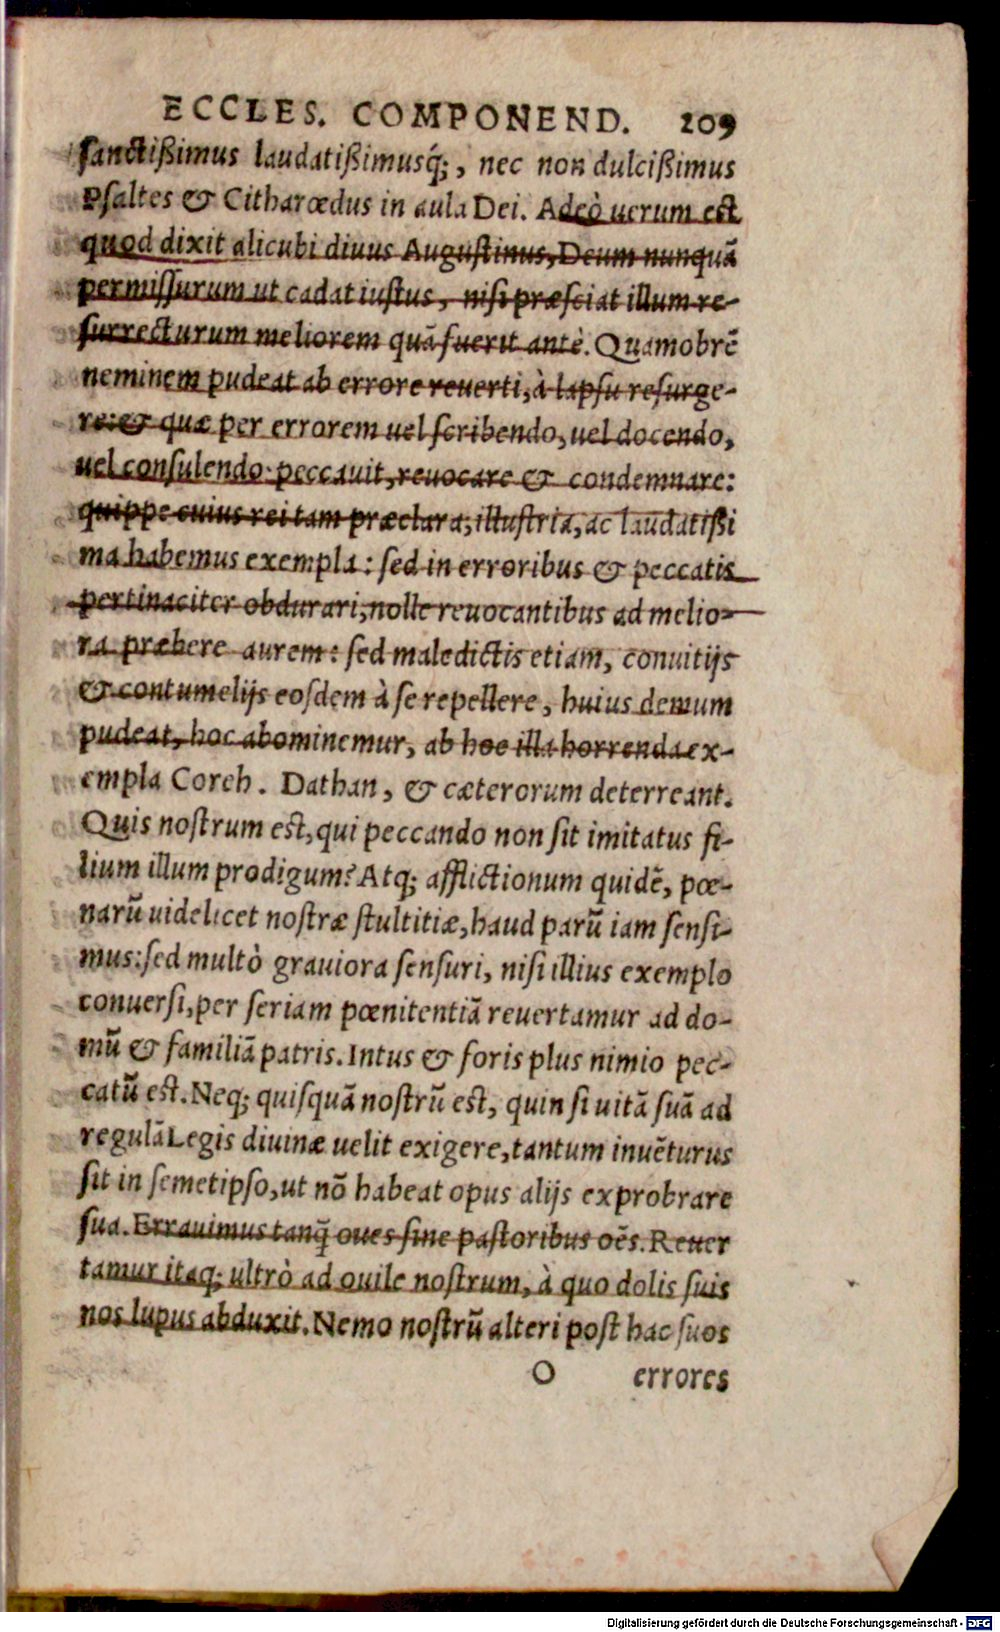 ECCLES. COMPONEND. 209
sanctißimus laudatißimusq́;, nec non dulcißimus
Psaltes & Citharœdus in aula Dei. Adeò uerum est
quod dixit alicubi diuus Augustinus, Deum nunquã
permissurum ut cadat iustus, nisi præsciat illum re-
surrecturum meliorem quã fuerit antè. Quamobrẽ
neminem pudeat ab errore reuerti, à lapsu resurge-
re: & quæ per errorem uel scribendo, uel docendo,
uel consulendo peccauit, reuocare & condemnare:
quippe cuius rei tam præclara, illustria, ac laudatißi
ma habemus exempla: sed in erroribus & peccatis
pertinaciter obdurari, nolle reuocantibus ad melio-
ra præbere aurem: sed maledictis etiam, conuitijs
& contumelijs eosdem à se repellere, huius demum
pudeat, hoc abominemur, ab hoc illa horrenda ex-
empla Coreh. Dathan, & cæterorum deterreant.
Quis nostrum est, qui peccando non sit imitatus fi-
lium illum prodigum? Atq; afflictionum quidẽ, pœ-
narũ uidelicet nostræ stultitiæ, haud parũ iam sensi-
mus: sed multò grauiora sensuri, nisi illius exemplo
conuersi, per seriam pœnitentiã reuertamur ad do-
mũ & familiã patris. Intus & foris plus nimio pec-
catũ est. Neq; quisquã nostrũ est, quin si uitã suã ad
regulã Legis diuinæ uelit exigere, tantum inuẽturus
sit in semetipso, ut nõ habeat opus alijs exprobrare
sua. Errauimus tanq̃ oues sine pastoribus oẽs. Reuer
tamur itaq; ultrò ad ouile nostrum, à quo dolis suis
nos lupus abduxit. Nemo nostrũ alteri post hac suos
O errores
Digitalisierung gefördert durch die Deutsche Forschungsgemeinschaft - DFG